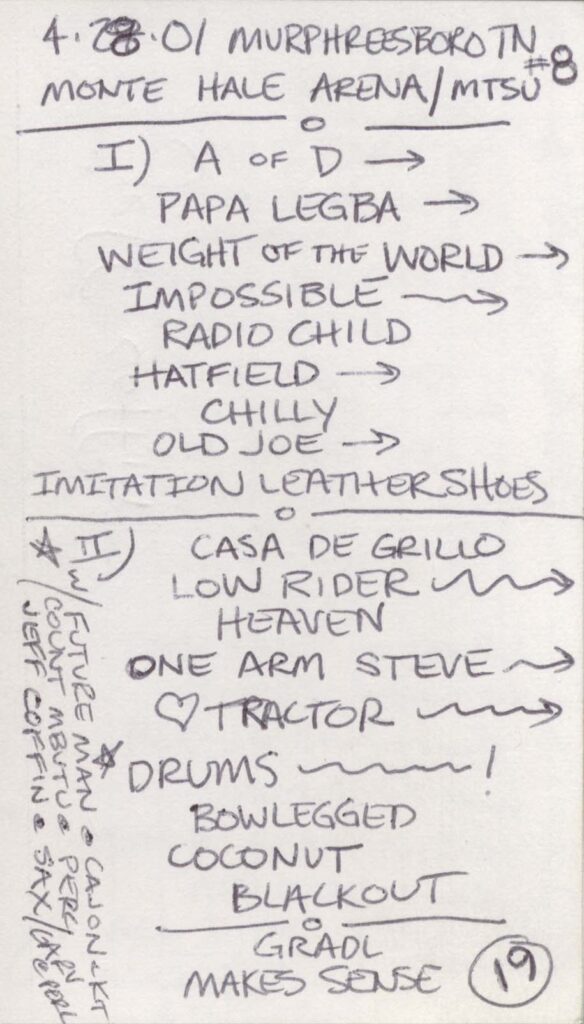 4.28.01 MURPHREESBORO TN
#8
MONTE HALE ARENA/MTSU
I) A OF D →
PAPA LEGBA →
WEIGHT OF THE WORLD →
IMPOSSIBLE →
RADIO CHILD
HATFIELD →
CHILLY
OLD JOE →
IMITATION LEATHER SHOES
II) CASA DE GRILLO
LOW RIDER →
HEAVEN
ONE ARM STEVE →
♡ TRACTOR →
☆ DRUMS ~ !
BOWLEGGED
COCONUT
BLACKOUT
GRADL
MAKES SENSE
19
☆ W/ FUTURE MAN • CAJON & KT
COUNT MBUTU • PERC
JEFF COFFIN • SAX/